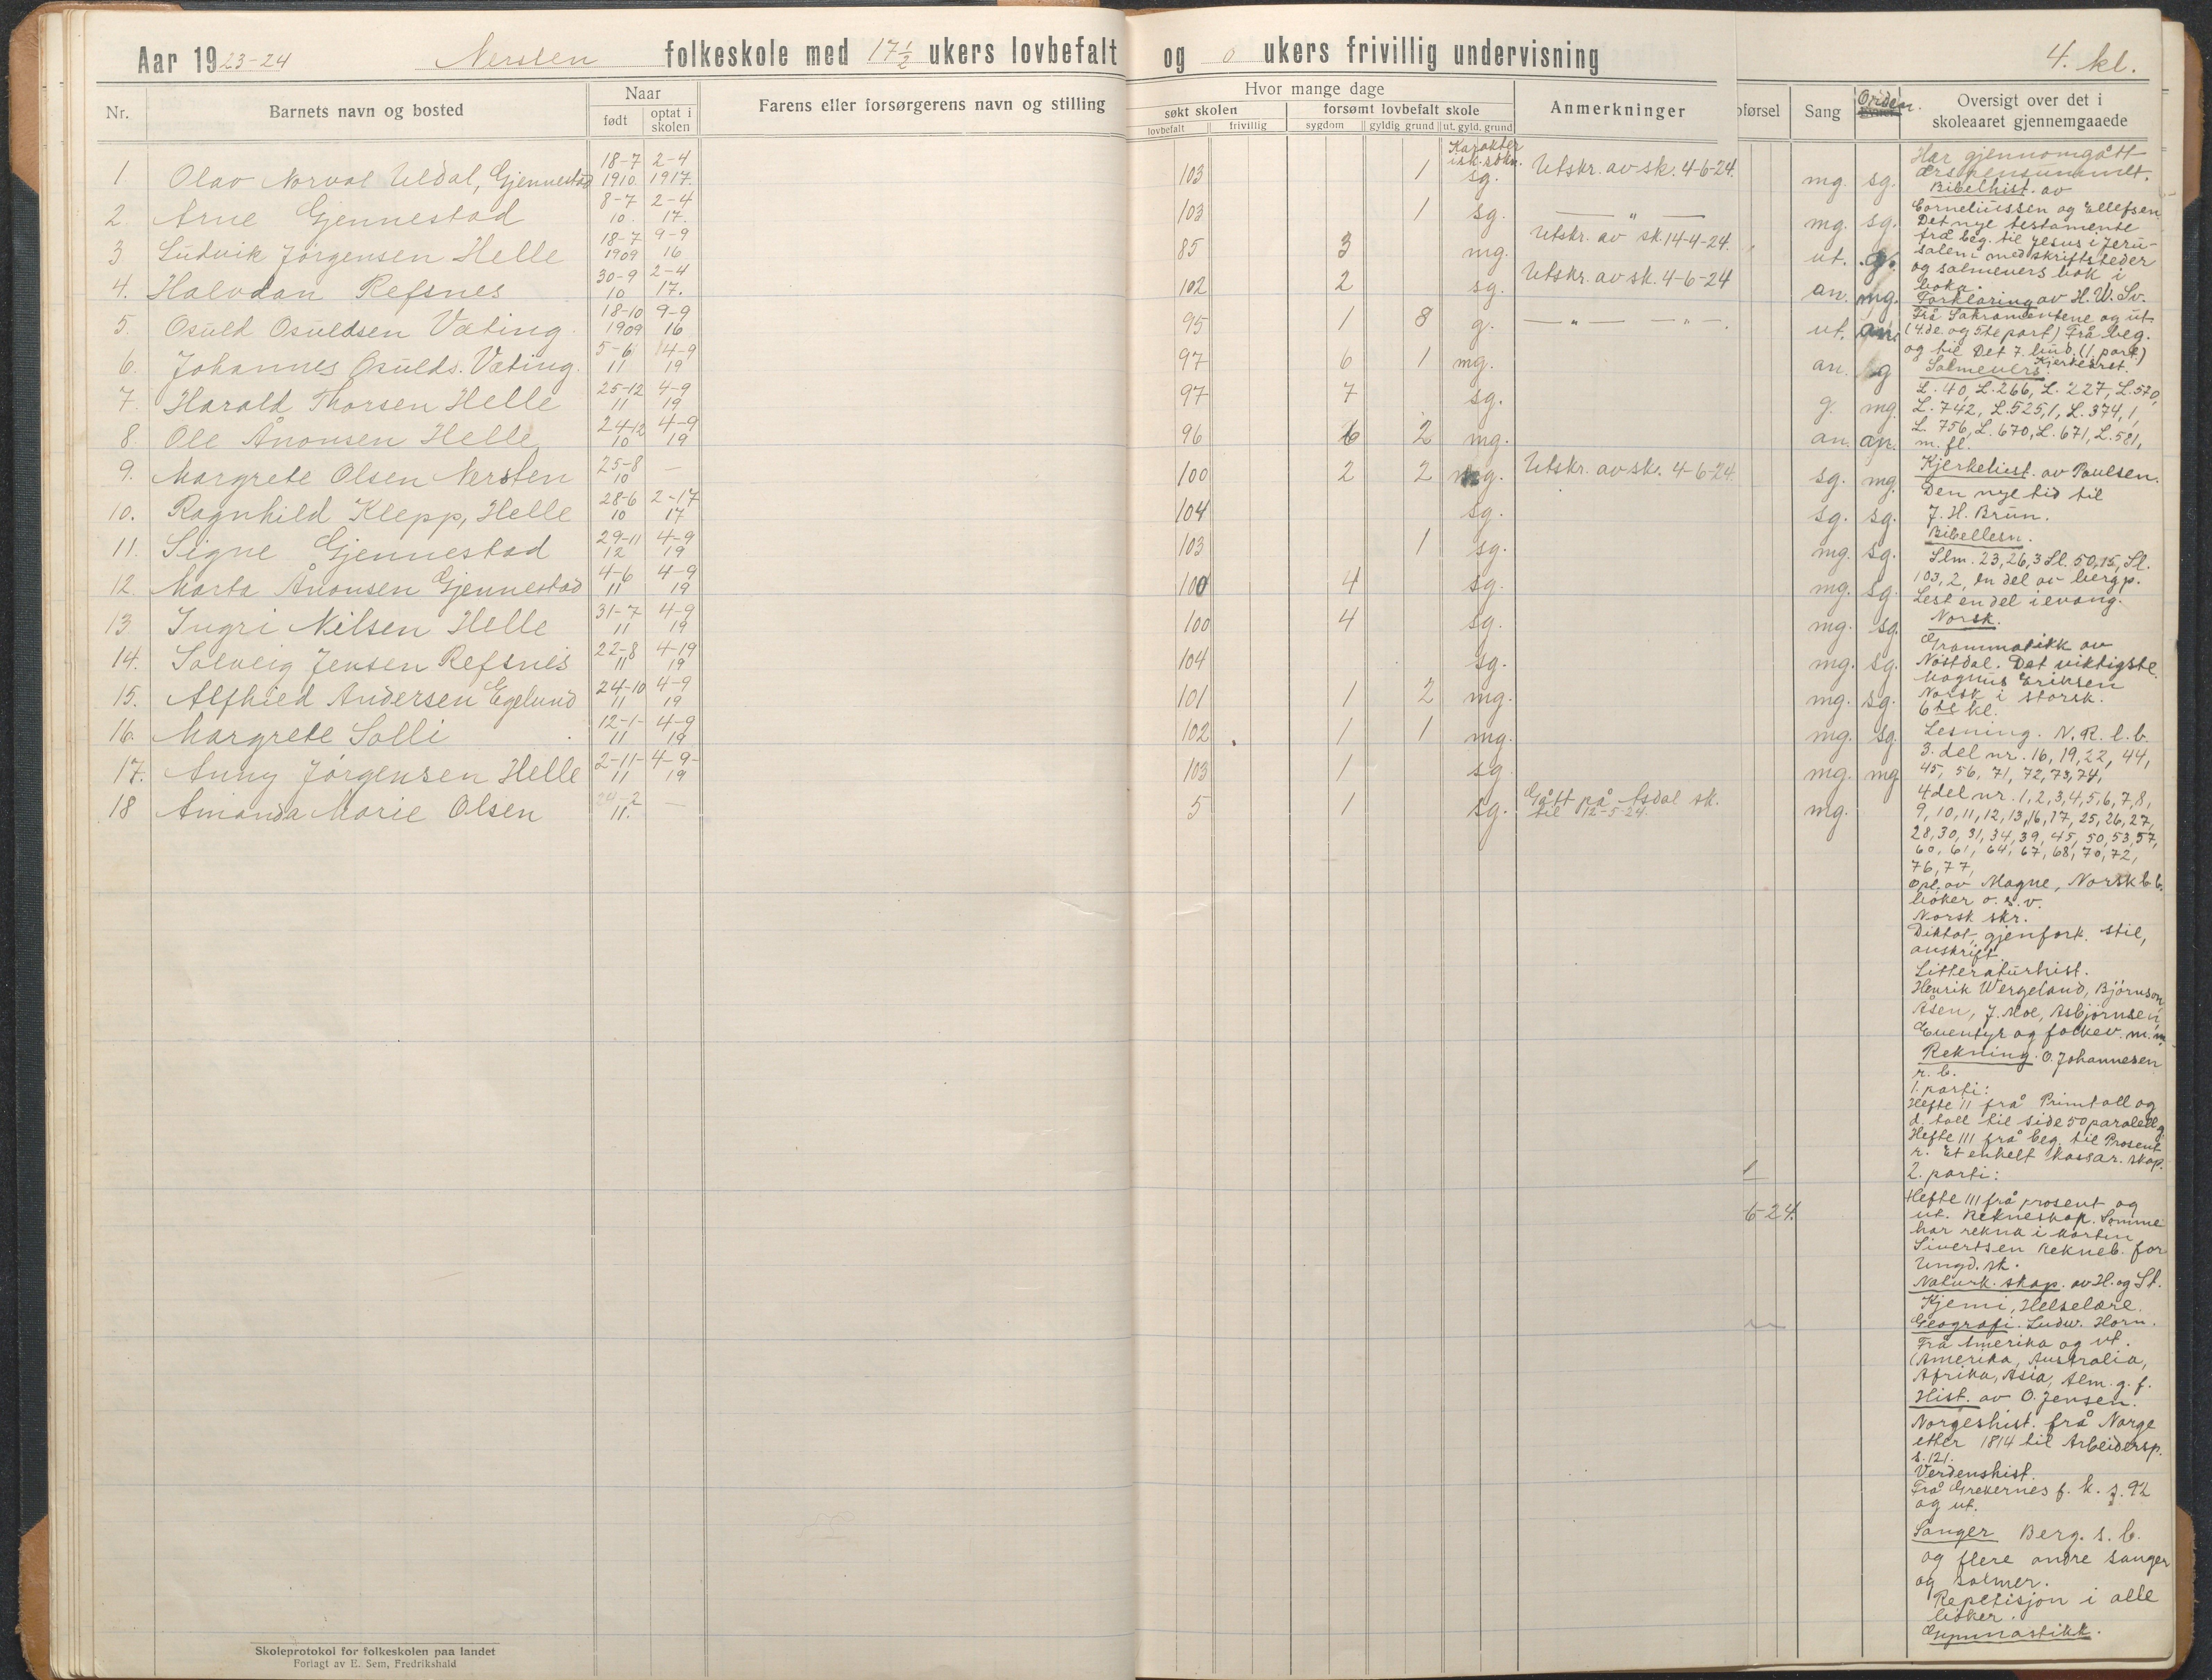 Aar 1923-24 Nersten folkeskole med 17 1/2 ukers lovbefalt og 0 ukers frivillig undervisning
4. kl.
Nr. Barnets navn og bosted Naar født optat i skolen Farens eller forsørgerens navn og stilling
Hvor mange dage
søkt skolen forsømt lovbefalt skole Anmerkninger
lovbefalt frivillig sygdom gyldig grund ut. gyld. grund
Karakter
førsel Sang Orden. Oversigt over det i skoleaaret gjennemgaaede
1 Olav Norval Uldal, Gjennestad 18-7 1910. 2-4 1917. 103 1 sg. Utskr. av sk. 4-6-24. mg. sg.
2. Arne Gjennestad 8-7 10. 2-4 17. 103 1 sg. — " — mg. sg.
3 Ludvik Jørgensen Helle 18-7 1909 9-9 16 85 3 mg. Utskr. av sk. 14-4-24. ut. g.
4. Halvdan Refsnes 30-9 10 2-4 17. 102 2 sg. Utskr. av sk. 4-6-24 an. mg.
5. Osuld Osuldsen Væting 18-10 1909 9-9 16 95 1 8 g. — " — — " —. ut. an.
6. Johannes Osulds. Væting. 5-6 11 14-9 19 97 6 1 mg. an. g
7. Harald Thorsen Helle 25-12 11 4-9 19 97 7 sg. g. mg.
8. Ole Ånonsen Helle 24-12 10 4-9 19 96 6 2 mg. an. an.
9. Margrete Olsen Nersten 25-8 10 — 100 2 2 mg. Utskr. av sk. 4-6-24. sg. mg.
10. Ragnhild Klepp, Helle 28-6 10 2-17 17 104 sg. sg. sg.
11. Signe Gjennestad 29-11 12 4-9 19 103 1 sg. mg. sg.
12. Marta Ånonsen Gjennestad 4-6 11 4-9 19 100 4 sg. mg. sg.
13. Ingri Nilsen Helle 31-7 11 4-9 19 100 4 sg. mg. sg
14. Solveig Jensen Refsnes 22-8 11 4-19 19 104 sg. mg. sg.
15. Alfhied Andersen Egelund 24-10 11 4-9 19 101 1 2 mg. mg. sg.
16. Margrete Solli 12-1- 11 4-9 19 102 1 1 mg. mg. sg
17. Anny Jørgensen Helle 2-11- 11 4-9- 19 103 1 sg mg. mg
18 Amanda Marie Olsen 24-2 11. — 5 1 sg. Gått på Asdal sk. til 12-5-24. mg.
Har gjennomgått
årspensummet.
Bibelhist. av
Corneliussen og Ellefsen
Det nye testamente
frå beg. til Jesus i Jeru-
salem med skriftsteder
og salmevers bok i
boka.
Forklaring av H. W. Sv.
Frå Sakramentene og ut
(4de. og 5te part) Frå beg.
og til Det 7. bud. (1. part)
Kjerkeåret.
Salmevers.
L. 40, L. 266, L. 227, L. 570,
L. 742, L. 525,1, L. 374, 1,
L. 756, L. 670, L. 671, L. 581,
m. fl.
Kjerkehist. av Poulsen.
Den nye tid til
J. H. Brun.
Bibellesn.
Slm. 23, 26, 3 Sl. 50,15, Sl.
103,2, en del av bergp.
Lest en del i evang.
Norsk.
Grammatikk av
Nöstdal. Det viktigste.
Magnus Eriksen
Norsk i storsk.
6te kl.
Lesning. N. R. l. b.
3. del nr. 16, 19, 22, 44,
45, 56, 71, 72, 73, 74,
4 del nr. 1, 2, 3, 4, 5, 6, 7, 8,
9, 10, 11, 12, 13, 16, 17, 25, 26, 27,
28, 30, 31, 34, 39, 45, 50, 53, 57,
60, 61, 64, 67, 68, 70, 72,
76, 77,
Opl. av Magne, Norsk b. b.
bøker o. s. v.
Norsk skr.
Diktat, gjenfort. stil,
avskrift.
Litteraturhist.
Henrik Wergeland, Bjørnson,
Åsen, J. Moe, Asbjørnsen,
Eventyr og folkev. m. m.
Rekning. O. Johannesen
r. b.
1. parti:
Hefte II frå Primtall og
d. tall til side 50 paralellg
Hefte III frå beg. til Prosent
r. Et enkelt kassar. skap.
1
2. parti:
Hefte III frå prosent og
6-24. ut. Rekneskap. Somme
har rekna i Morten
Sivertsen Rekneb. for
Ungd. sk.
Naturk. skap. av H. og St.
Kjemi, Helselære.
Geografi. Ludw. Horn.
Frå Amerika og ut.
(Amerika, Australia,
Afrika, Asia, Alm. g. f.
Hist. av O. Jensen.
Norgeshist. frå Norge
etter 1814 til Arbeidersp.
s. 121.
Verdenshist.
Frå Grekernes f. k. s. 92
og ut.
Sanger Berg. s. b.
og flere andre sanger
og salmer.
Repetisjon i alle
bøker.
Gymnastikk.
Skoleprotokol for folkeskolen paa landet
Forlagt av E. Sem, Fredrikshald